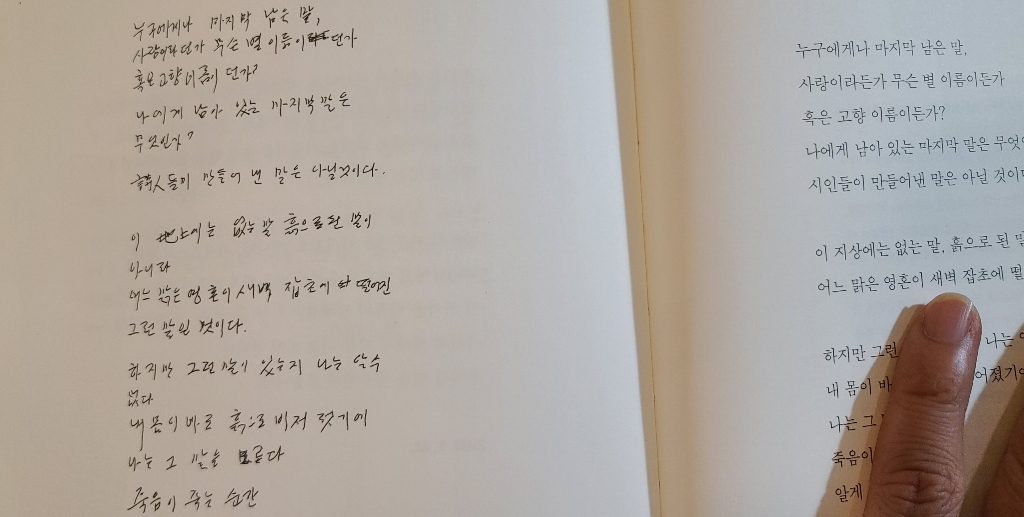 누구에게나 마지막 남은 말,
사랑이라던가 무슨 별 이름이던가
혹은 고향이름이던가?
나에게 남아 있는 마지막 말은
무엇인가?
詩人들이 만들어 낸 말은 아닐것이다.
이 地上에는 없는 말 흙으로 된 말이
아니다
어느 맑은 영혼이 새벽 잡초에 떨어진
그런 말일 것이다.
하지만 그런 말이 있는지 나는 알수
없다
내 몸이 바로 흙으로 비저 젓기에
나는 그 말을 모른다
죽음이 죽는 순간
누구에게나 마지막 남은 말,
사랑이라든가 무슨 별 이름이든가
혹은 고향 이름이든가?
나에게 남아 있는 마지막 말은
시인들이 만들어낸 말은 아닐
이 지상에는 없는 말, 흙으로 된
어느 맑은 영혼이 새벽 잡초에
하지만 그런 나는
내 몸이
나는 그
죽음이
알게